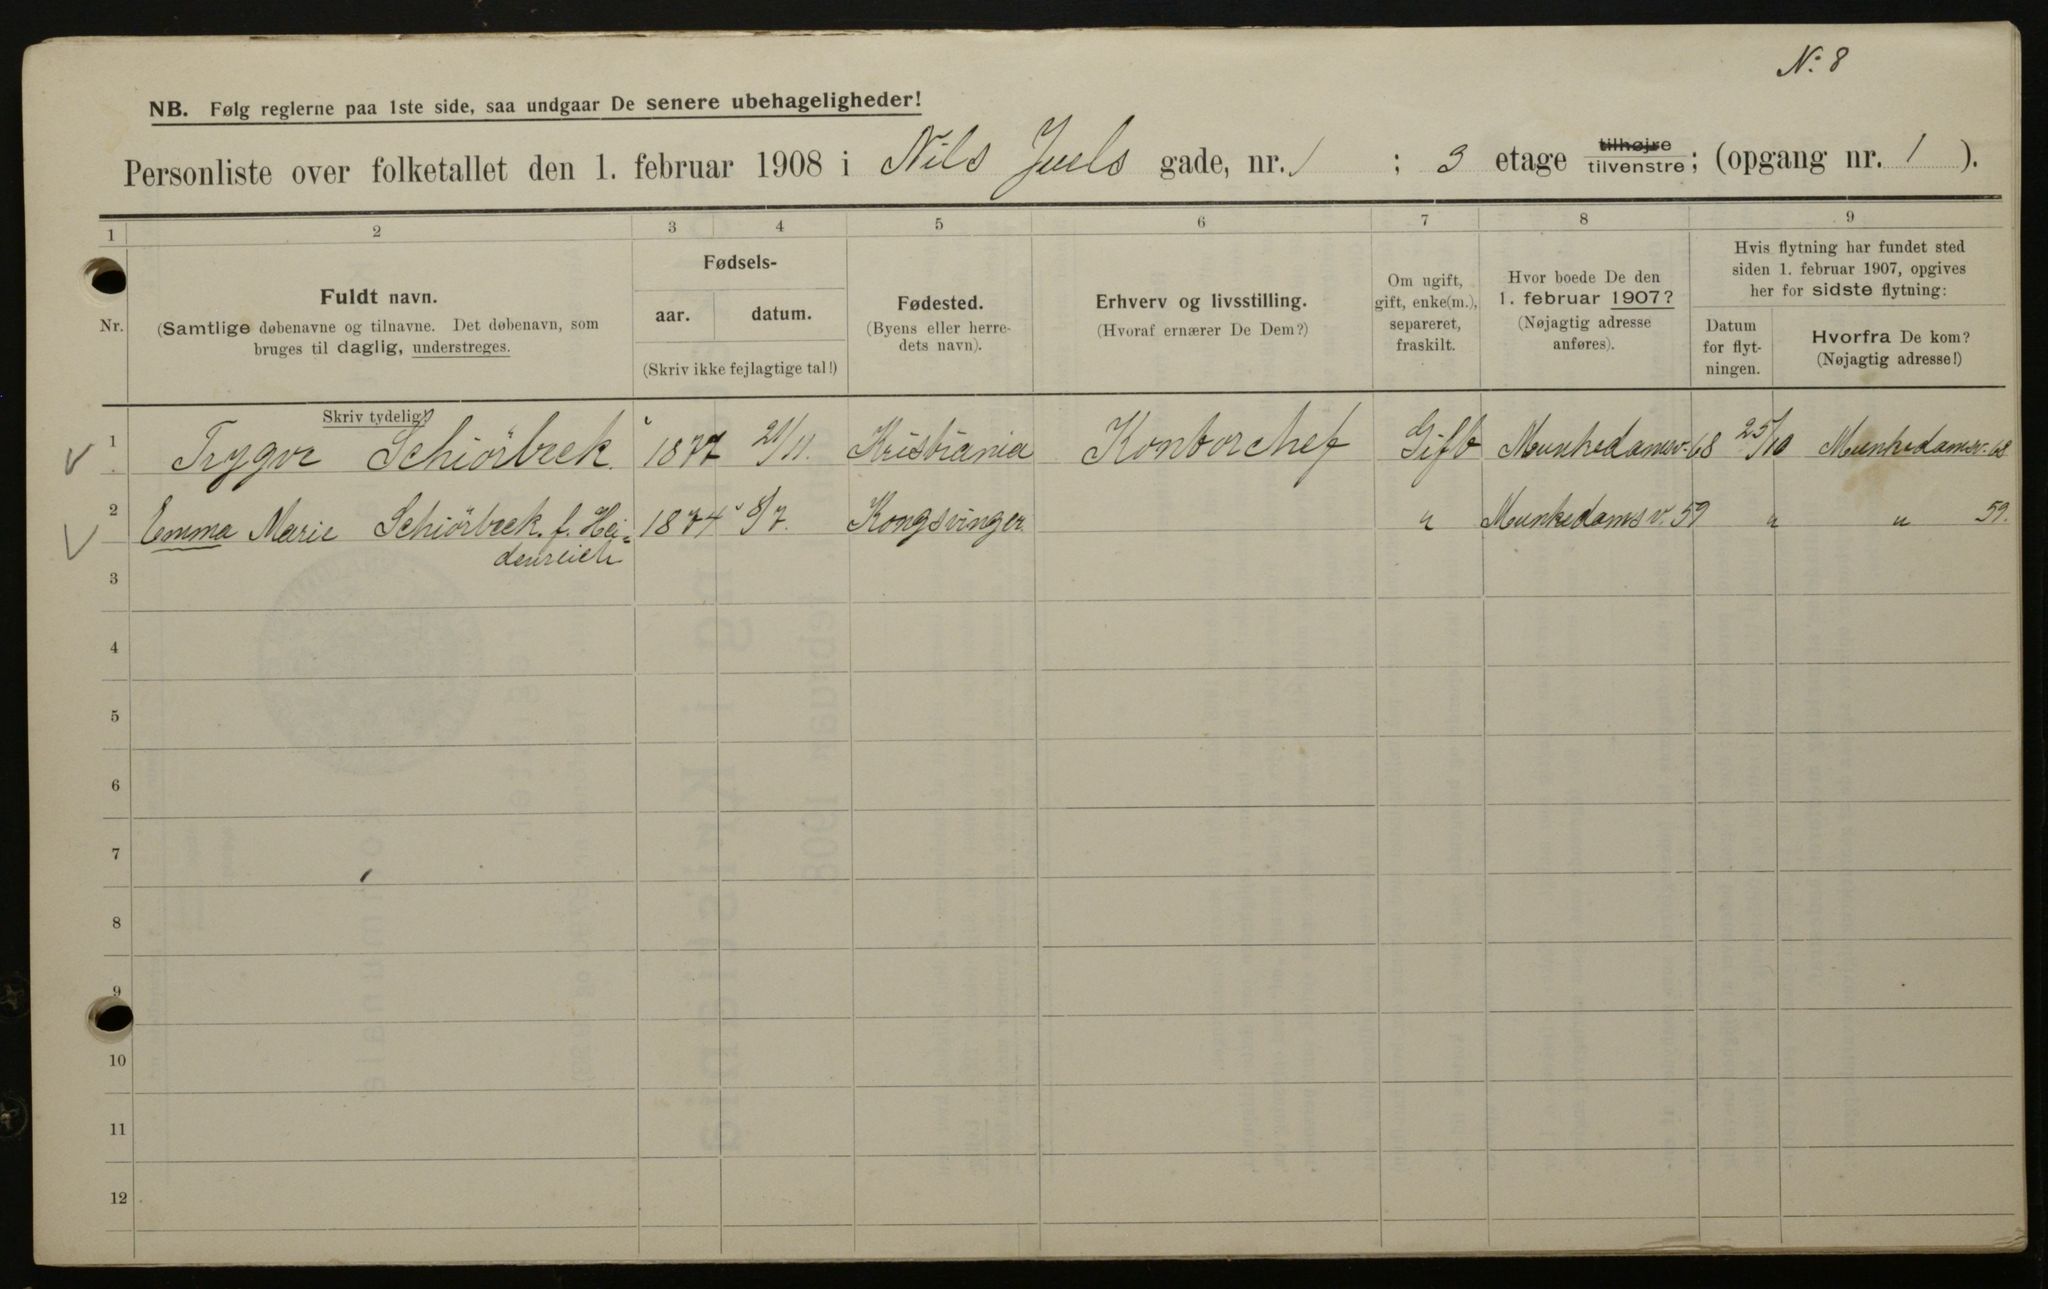 N: 8
NB. Følg reglerne paa 1ste side, saa undgaar De senere ubehageligheder!
Personliste over folketallet den 1. februar 1908 i Nils Juels gade, nr. 1 ; 3 etage tilhøjre tilvenstre; (opgang nr. 1 ).
1 2 3 4 5 6 7 8 9
Nr.
Fuldt navn.
(Samtlige døbenavne og tilnavne. Det døbenavn, som
bruges til daglig, understreges.
Fødsels-
aar. datum.
(Skriv ikke fejlagtige tal!)
Fødested.
(Byens eller herre-
dets navn).
Erhverv og livsstilling.
(Hvoraf ernærer De Dem?)
Om ugift,
gift, enke(m.),
separeret,
fraskilt.
Hvor boede De den
1. februar 1907?
(Nøjagtig adresse
anføres).
Hvis flytning har fundet sted
siden 1. februar 1907, opgives
her for sidste flytning:
Datum
for flyt-
ningen.
Hvorfra De kom?
(Nøjagtig adresse!)
Skriv tydelig!
1 Trygve Schiörbeck. 1877 21/11. Kristiania Kontorchef Gift Munkedamsv. 68 25/10 Munkedamsv. 68
2 Emma Marie Schiörbeck. f. Hei- 1874 8/7. Kongsvinger. " Munkedamsv. 59 " " 59.
denreich
3
4
5
6
7
8
9
10
11
12